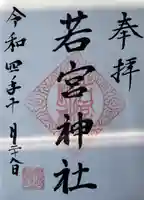 奉拝
若宮神社
令和四年十月二十八日